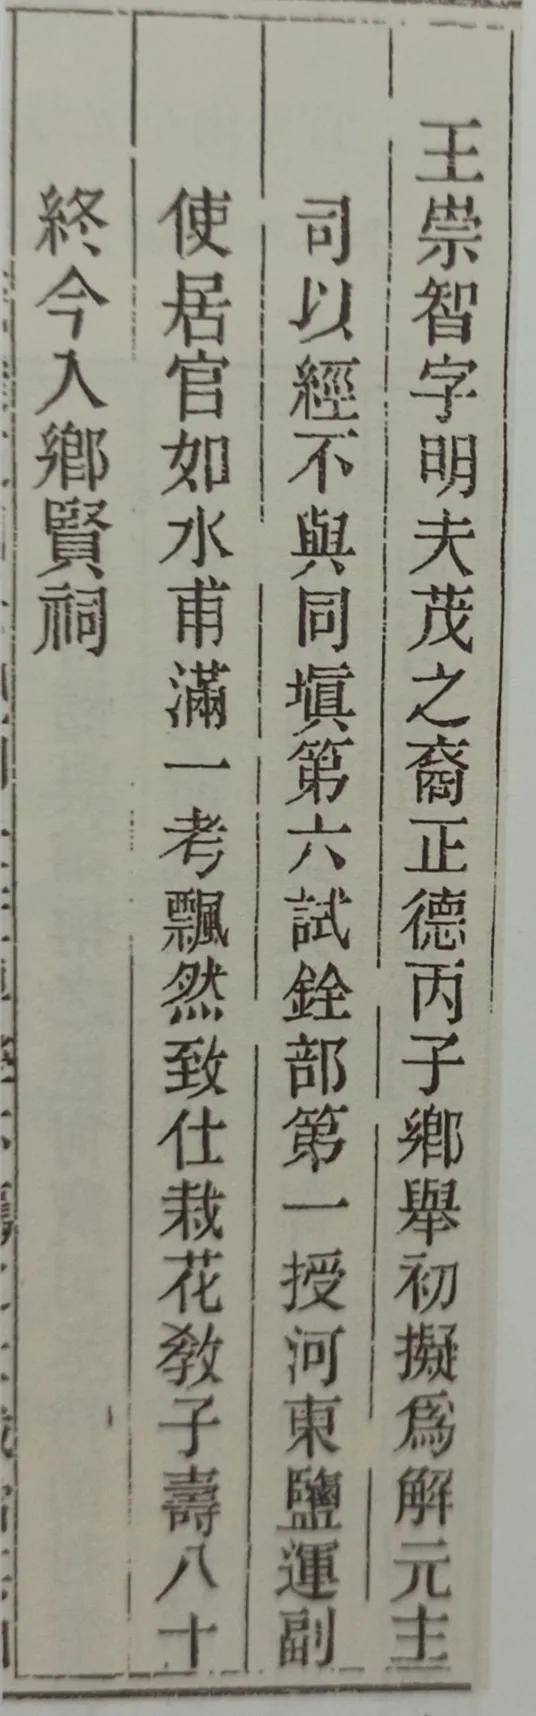 王崇智字明夫茂之裔正德丙子鄉舉初擬爲解元主
司以經不與同塡第六試銓部第一授河東鹽運副
使居官如水甫滿一考飄然致仕栽花敎子壽八十
終今入鄉賢祠